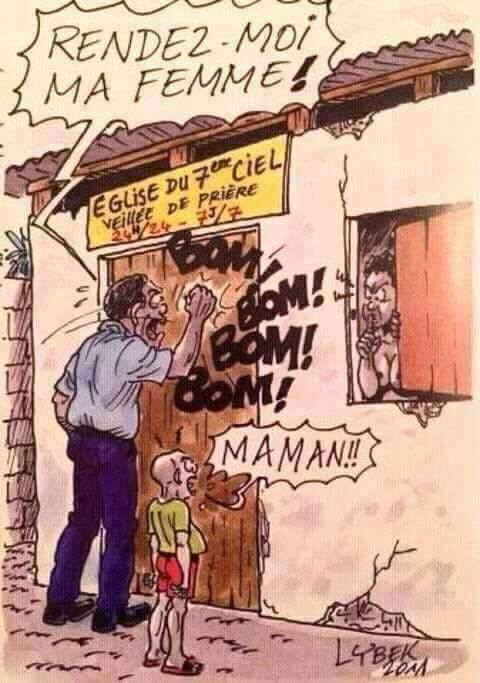 RENDEZ-MOI
MA FEMME!
EGLISE DU 7eme CIEL
VEILLÉE DE PRIÈRE
24H/24 - 7J/7
BOM!
BOM!
BOM!
BOM!
MAMAN!!
LYBEK
2011